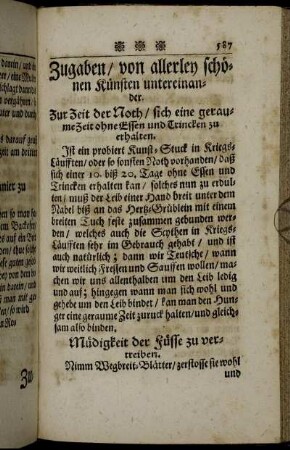 587
Zugaben/ von allerley schö-
nen Künsten untereinan-
der.
Zur Zeit der Noth/ sich eine gerau-
me Zeit ohne Essen und Trincken zu
erhalten.
Ist ein probiert Kunst-Stuck in Kriegs-
Läufften/ oder so sonsten Noth vorhanden/ daß
sich einer 10. biß 20. Tage ohne Essen und
Trincken erhalten kan/ solches nun zu erdul-
ten/ muß der Leib einer Hand breit unter dem
Nabel biß an das Hertz-Grüblein mit einem
breiten Tuch feste zusammen gebunden wer-
den/ welches auch die Scythen in Kriegs-
Läufften sehr im Gebrauch gehabt/ und ist
auch natürlich; dann wir Teutsche/ wann
wir weitlich Fressen und Sauffen wollen/ ma-
chen wir uns allenthalben um den Leib ledig
und auf; hingegen wann man sich wohl und
gehebe um den Leib bindet/ kan man den Hun-
ger eine geraume Zeit zuruck halten/ und gleich-
sam also binden.
Müdigkeit der Füsse zu ver-
treiben.
Nimm Wegbreit-Blätter/ zerstosse sie wohl
und